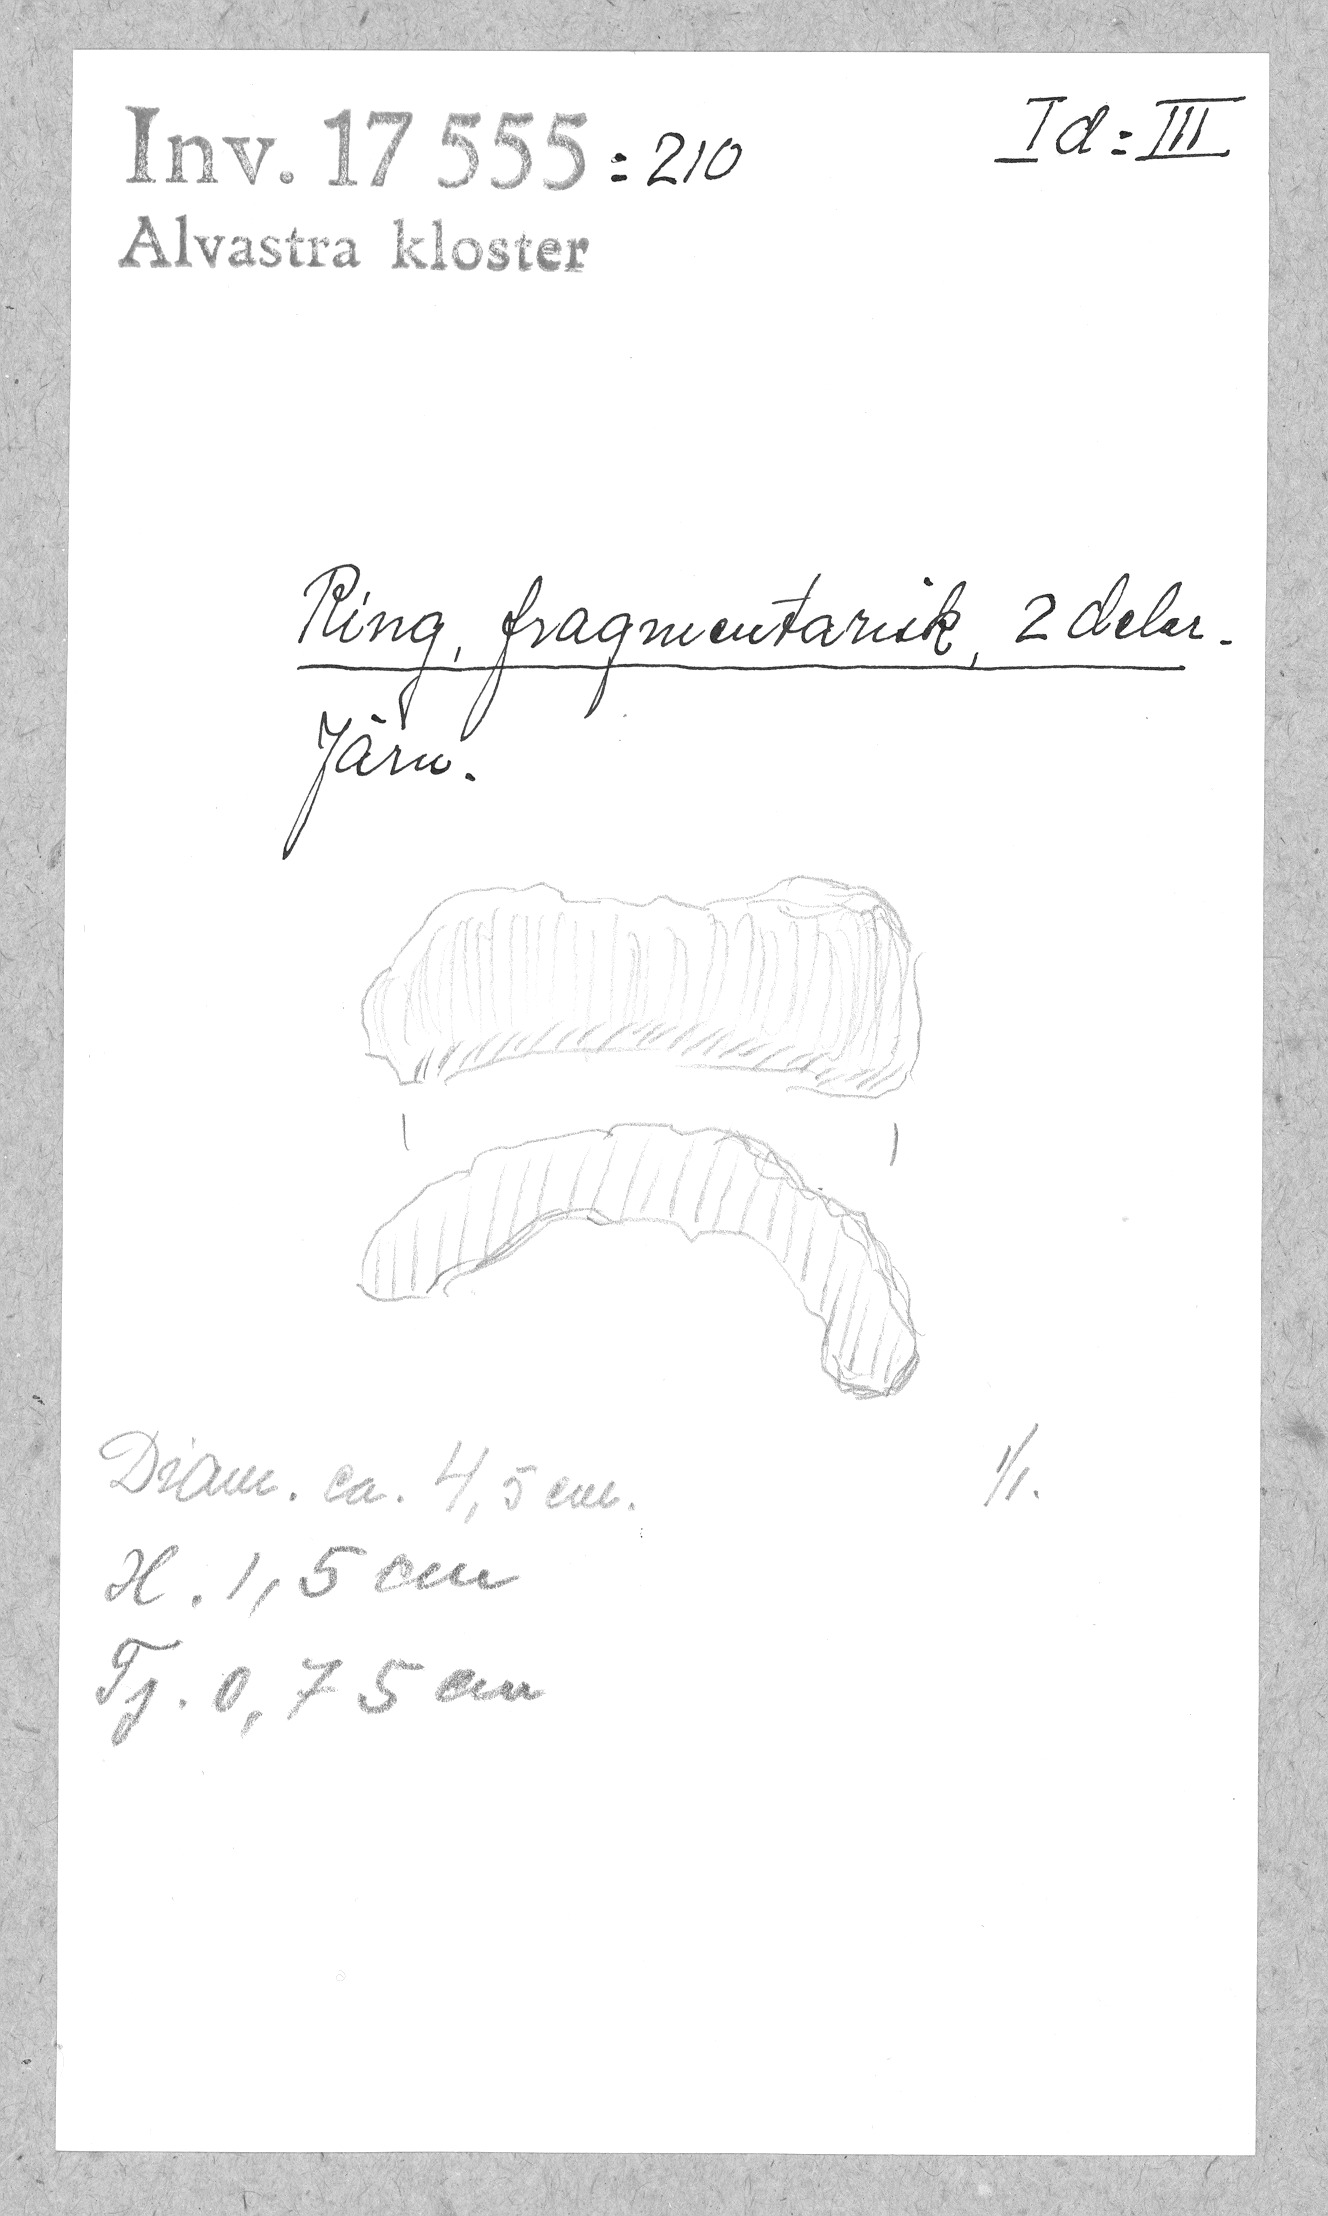 Inv. 17 555 : 210
Id : III
Alvastra kloster
Ring, fragmentarisk, 2 delar.
Järn.
Diam. ca. 4,5 cm.
1/1.
H. 1,5 cm
Tj. 0,75 cm